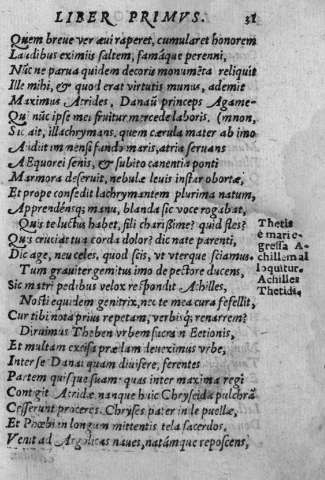 LIBER PRIMVS. 31
Quem breue ver æui raperet, cumularet honorem
Laudibus eximiis saltem, famáque perenni,
Nūc ne parua quidem decoris monumēta reliquit
Ille mihi, & quod erat virtutis munus, ademit
Maximus Atrides, Danaū princeps Agame-
Qui nūc ipse mei fruitur mercede laboris. (mnon,
Sic ait, illachrymans, quem cærula mater ab imo
Audiit immensi fundo maris, atria seruans
AEquorei senis, & subito canentia ponti
Marmora deseruit, nebulæ leuis instar obortæ,
Et prope consedit lachrymantem plurima natum,
Apprendénsq; manu, blanda sic voce rogabat,
Quis te luctus habet, fili charissime? quid fles?
Quis cruciat tua corda dolor? dic nate parenti,
Dic age, neu celes, quod scis, vt vterque sciamus.
Tum grauiter gemitus imo de pectore ducens,
Sic matri pedibus velox respondit Achilles,
Nosti equidem genitrix, nec te mea cura fefellit,
Cur tibi nota prius repetam, verbisq; renarrem?
Diruimus Theben vrbem sacram Eetionis,
Et multam excisa prædam deueximus vrbe,
Inter se Danai quam diuisere, ferentes
Partem quisque suam: quas inter maxima regi
Contigit Atridæ nanque huic Chryseida pulchrā
Cesserunt proceres. Chryses pater inde puellæ,
Et Phœbi in longum mittentis tela sacerdos,
Venit ad Argolicas naues, natámque reposcens,
Thetis
è mari e-
gressa A-
chillem al
loquitur.
Achilles
Thetidi.